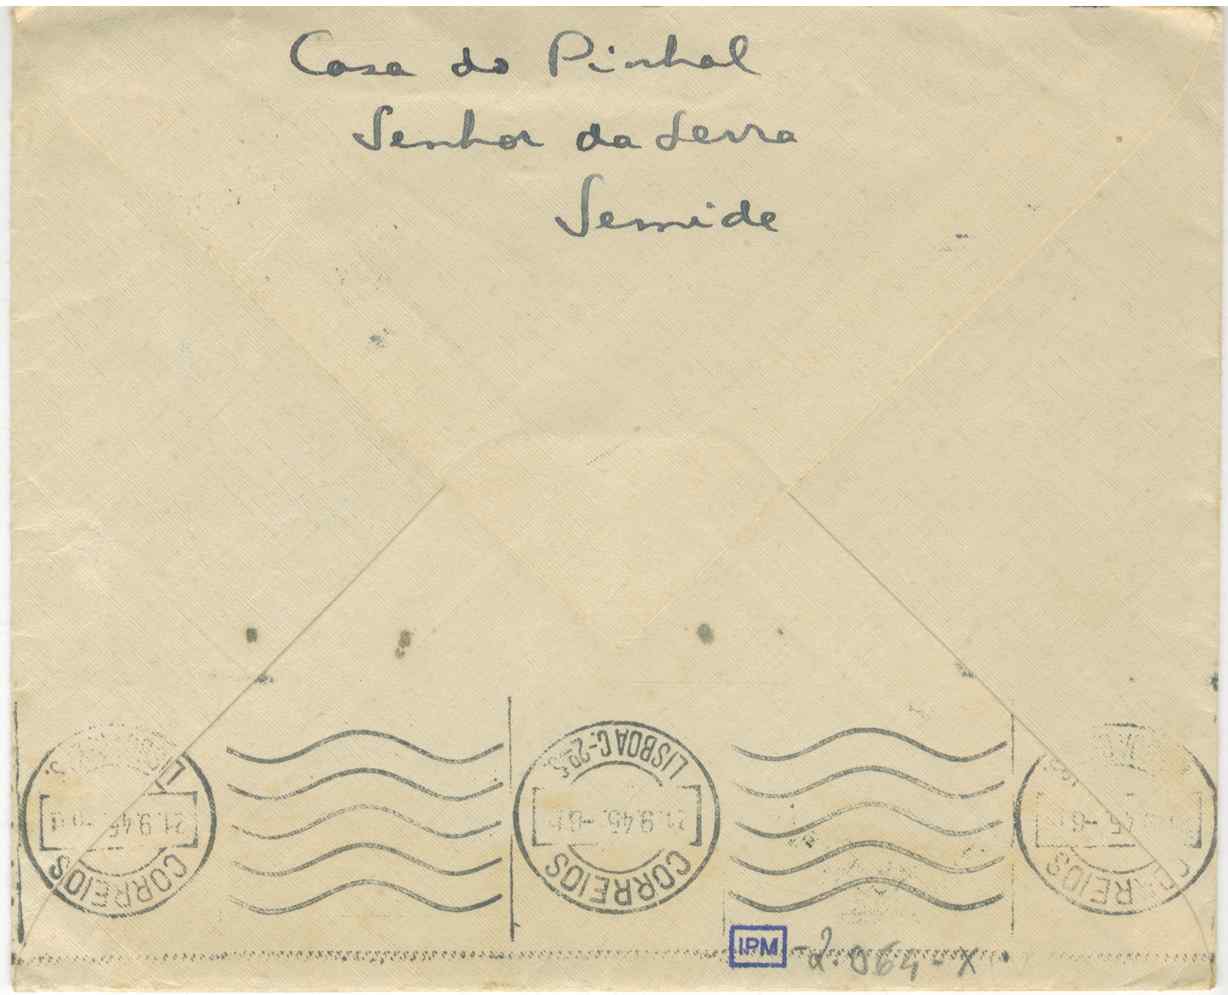 Casa do Pinhal
Senhor da Serra
Semide
LISBOA C.-2ª S.
21.9.45.
CORREIOS
LISBOA C.-2ª S.
21.9.45.-6
CORREIOS
9.45.-6
CORREIOS
IPM -2.064-X